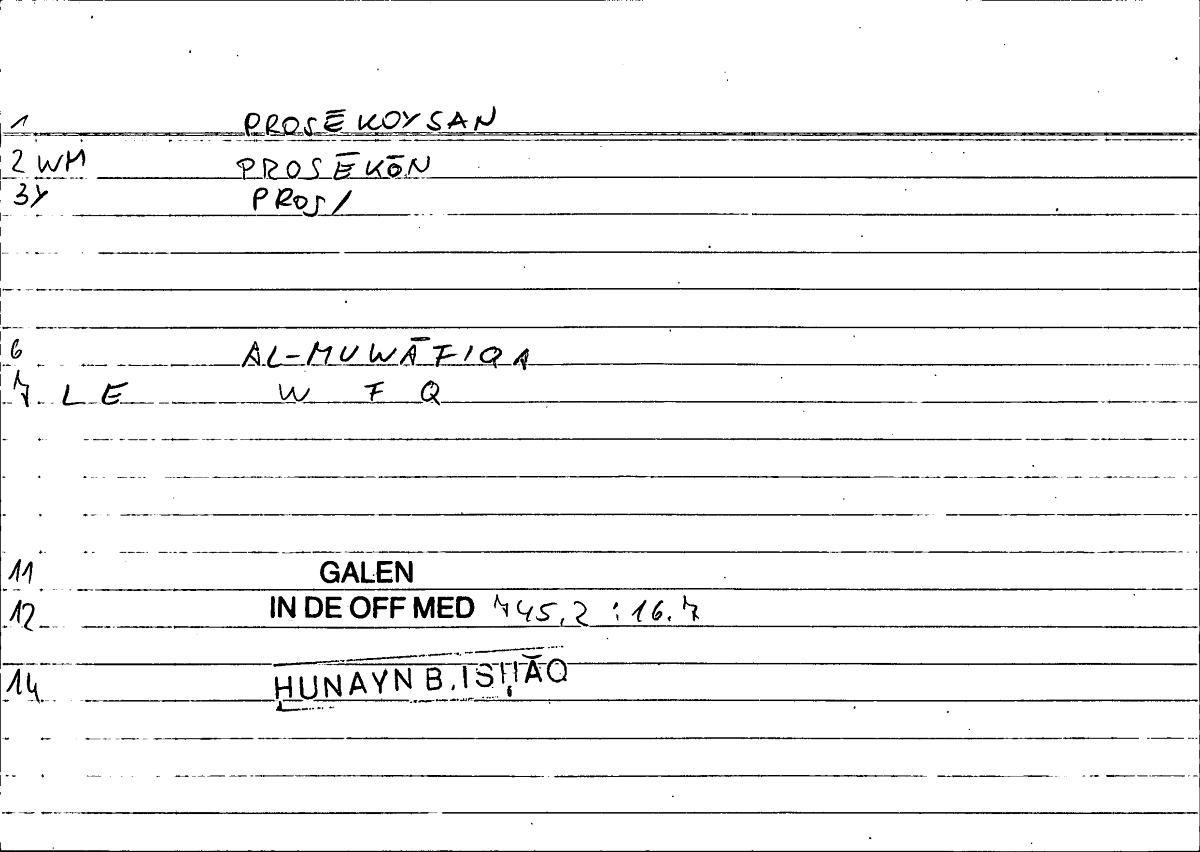 1 PROSĒKOYSAN
2 WM PROSĒKŌN
3Y PROS/
6 AL-MUWĀFIQA
7 L E W F Q
11 GALEN
12 IN DE OFF MED 745,2 : 16.7
14 ḤUNAYN B. ISḤĀQ